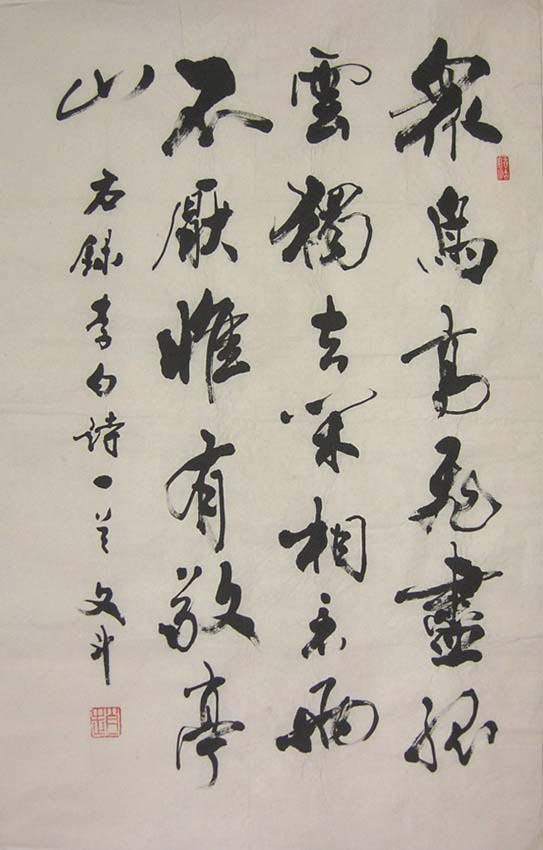 眾鳥高飛盡孤
雲獨去閑相看兩
不厭惟有敬亭
山
右錄李白詩一首 文斗